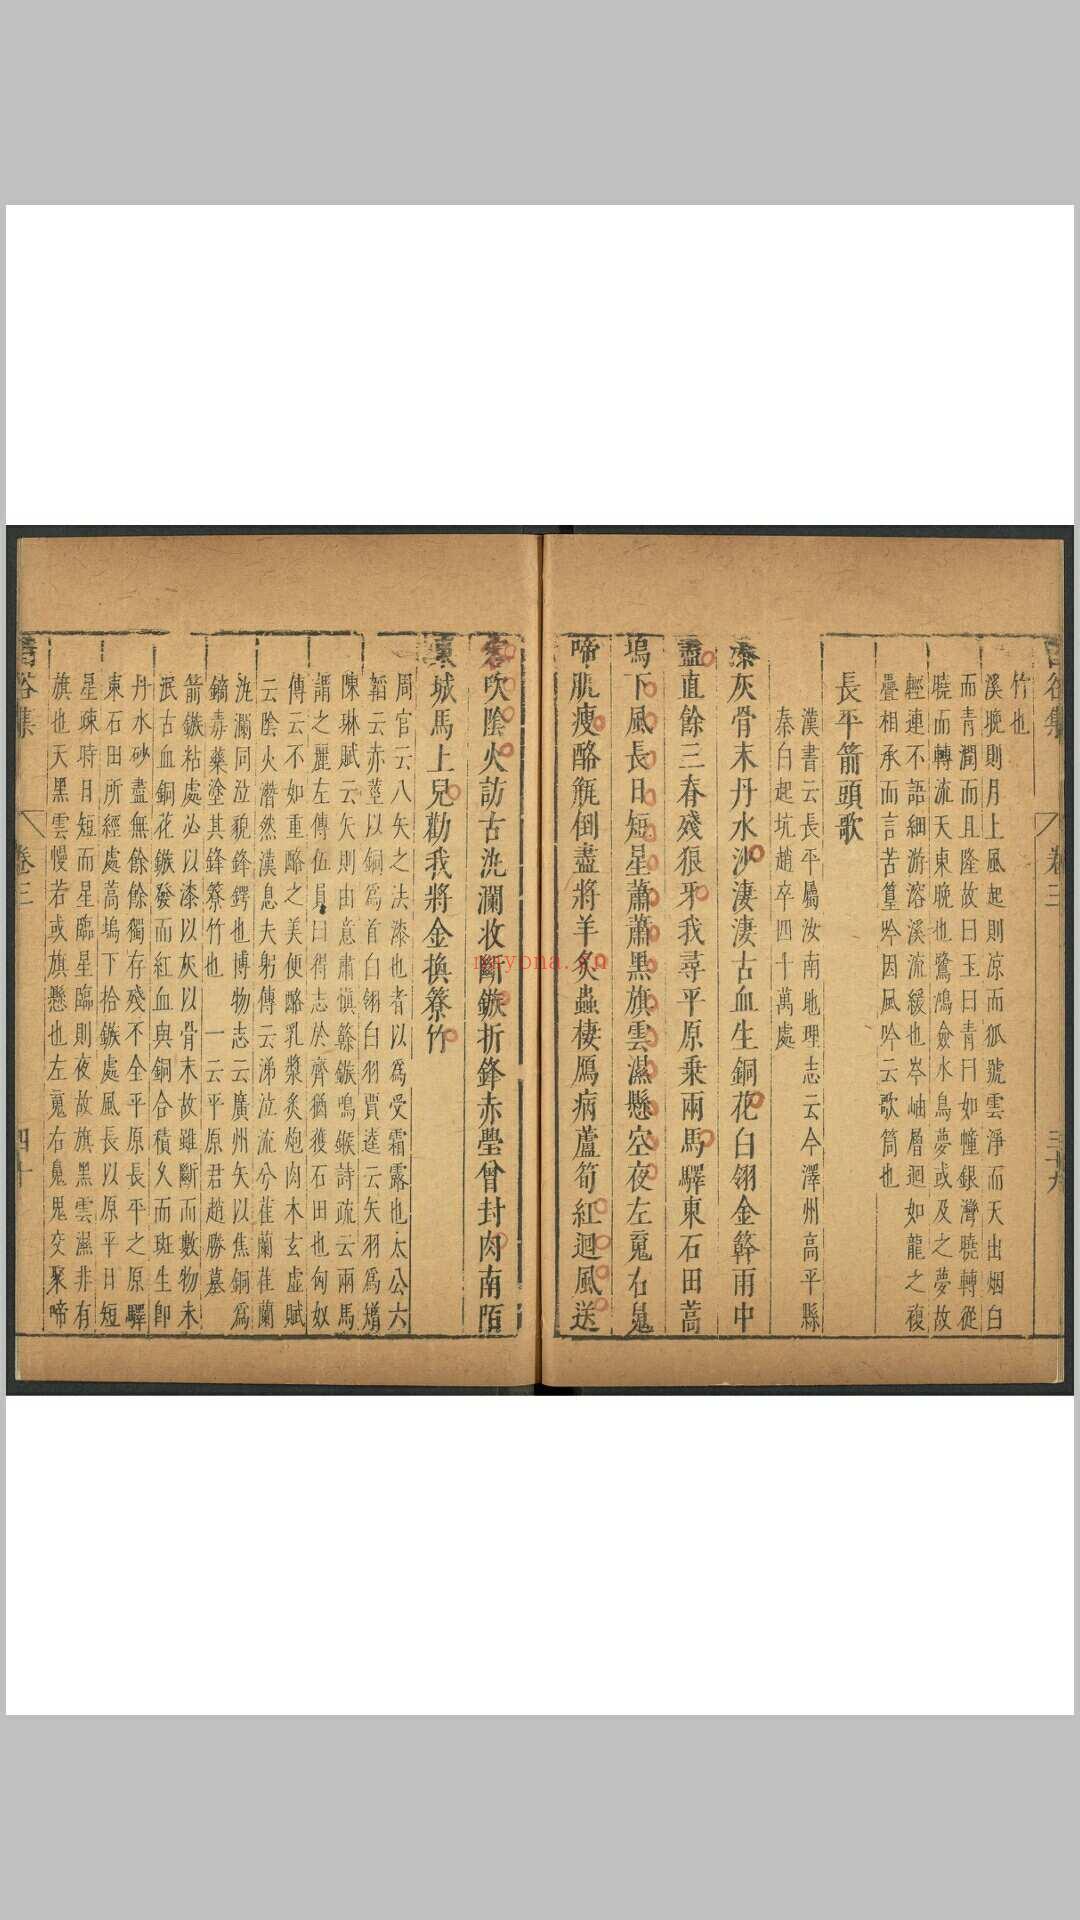 竹也
溪晚則月上風起則凉而狐號雲淨而天出烟白
而青潤而且隆故曰玉曰青曰如幢銀灣曉轉從
曉而轉流天東晚也鷺鴻僉水鳥夢或及之夢故
輕連不語細游溶溪流緩也岑岫層迴如龍之複
疊相承而言苦篁吟因風吟云歌筒也
長平箭頭歌
漢書云長平屬汝南地理志云今澤州高平縣
秦白起坑趙卒四十萬處
漆灰骨末丹水沙淒淒古血生銅花白翎金簳雨中
盡直餘三脊殘狼牙我尋平原乗兩馬驛東石田蒿
塢下風長日短星蕭蕭黑旗雲濕懸空夜左䰟右䰟
啼肌瘦酪甁倒盡將羊炙蟲棲鴈病蘆筍紅迴風送
客吹陰火訪古汍瀾收斷鏃折鋒赤璺曾刲肉南陌
東城馬上兒勸我將金換簝竹
周官云八矢之法漆也者以爲受霜露也太公六
韜云赤莖以銅爲首白翎白羽賈逵云矢羽爲矰
陳琳賦云矢則由意肅愼簳鏃鳴鍭詩疏云兩馬
謂之麗左傳伍員曰得志於齊猶獲石田也匈奴
傳云不如重酪之美便酪乳漿炙炮肉木玄虛賦
云陰火潛然漢息夫躬傳云涕泣流兮萑蘭萑蘭
汍瀾同泣貌鋒鍔也博物志云廣州矢以焦銅爲
鏑毒藥塗其鋒簝竹也 一云平原君趙勝墓
箭鏃粘處必以漆以灰以骨末故雖斷而數物未
泯古血銅花鏃發而紅血與銅合積久而斑生即
丹水砂盡無餘餘獨存殘不全平原長平之原驛
東石田所經處蒿塢下拾鏃處風長以原平日短
星疎時日短而星臨星臨則夜故旗黑雲濕非有
旗也天黑雲慢若或旗懸也左䰟右䰟鬼交聚啼
卷三
卷三
四十